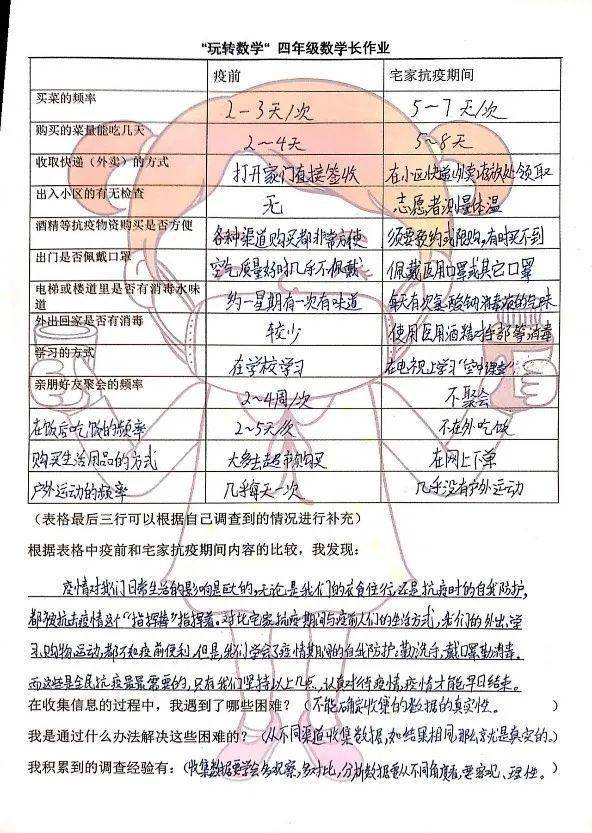 "玩转数学" 四年级数学长作业
疫前 宅家抗疫期间
买菜的频率 2-3天/次 5~7天/次
购买的菜量能吃几天 2~4天 5~8天
收取快递（外卖）的方式 打开家门直接签收 在小区快递外卖存放处领取
出入小区的有无检查 无 志愿者测量体温
酒精等抗疫物资购买是否方便 各种渠道购买都非常方便 须要预约或限购，有时买不到
出门是否佩戴口罩 空气质量好时几乎不佩戴 佩戴医用口罩或其它口罩
电梯或楼道里是否有消毒水味道 约一星期有一次有味道 每天有次氯酸钠消毒液的气味
外出回家是否有消毒 较少 使用医用酒精对手部等消毒
学习的方式 在学校学习 在电视上学习"空中课堂"
亲朋好友聚会的频率 2~4周/次 不聚会
在饭店吃饭的频率 2~5天/次 不在外吃饭
购买生活用品的方式 大多去超市购买 在网上下单
户外运动的频率 几乎每天一次 几乎没有户外运动
（表格最后三行可以根据自己调查到的情况进行补充）
根据表格中疫前和宅家抗疫期间内容的比较，我发现：
疫情对我们日常生活的影响是巨大的，无论是我们的衣食住行，还是抗疫时的自我防护，
都被抗击疫情这个"指挥棒"指挥着。对比宅家抗疫期间与疫前人们的生活方式，我们的外出、学
习、购物、运动都不如疫前便利。但是，我们学会了疫情期间的自我防护：勤洗手，戴口罩，勤消毒。
而这些是全民抗疫最需要的，只有我们坚持以上几点，认真对待疫情，疫情才能早日结束。
在收集信息的过程中，我遇到了哪些困难？（不能确定收集的数据的真实性。）
我是通过什么办法解决这些困难的？（从不同渠道收集数据，如结果相同，那么就是真实的。）
我积累到的调查经验有：（收集数据要学会多观察，多对比，分析数据要从不同角度看，要客观、理性。）